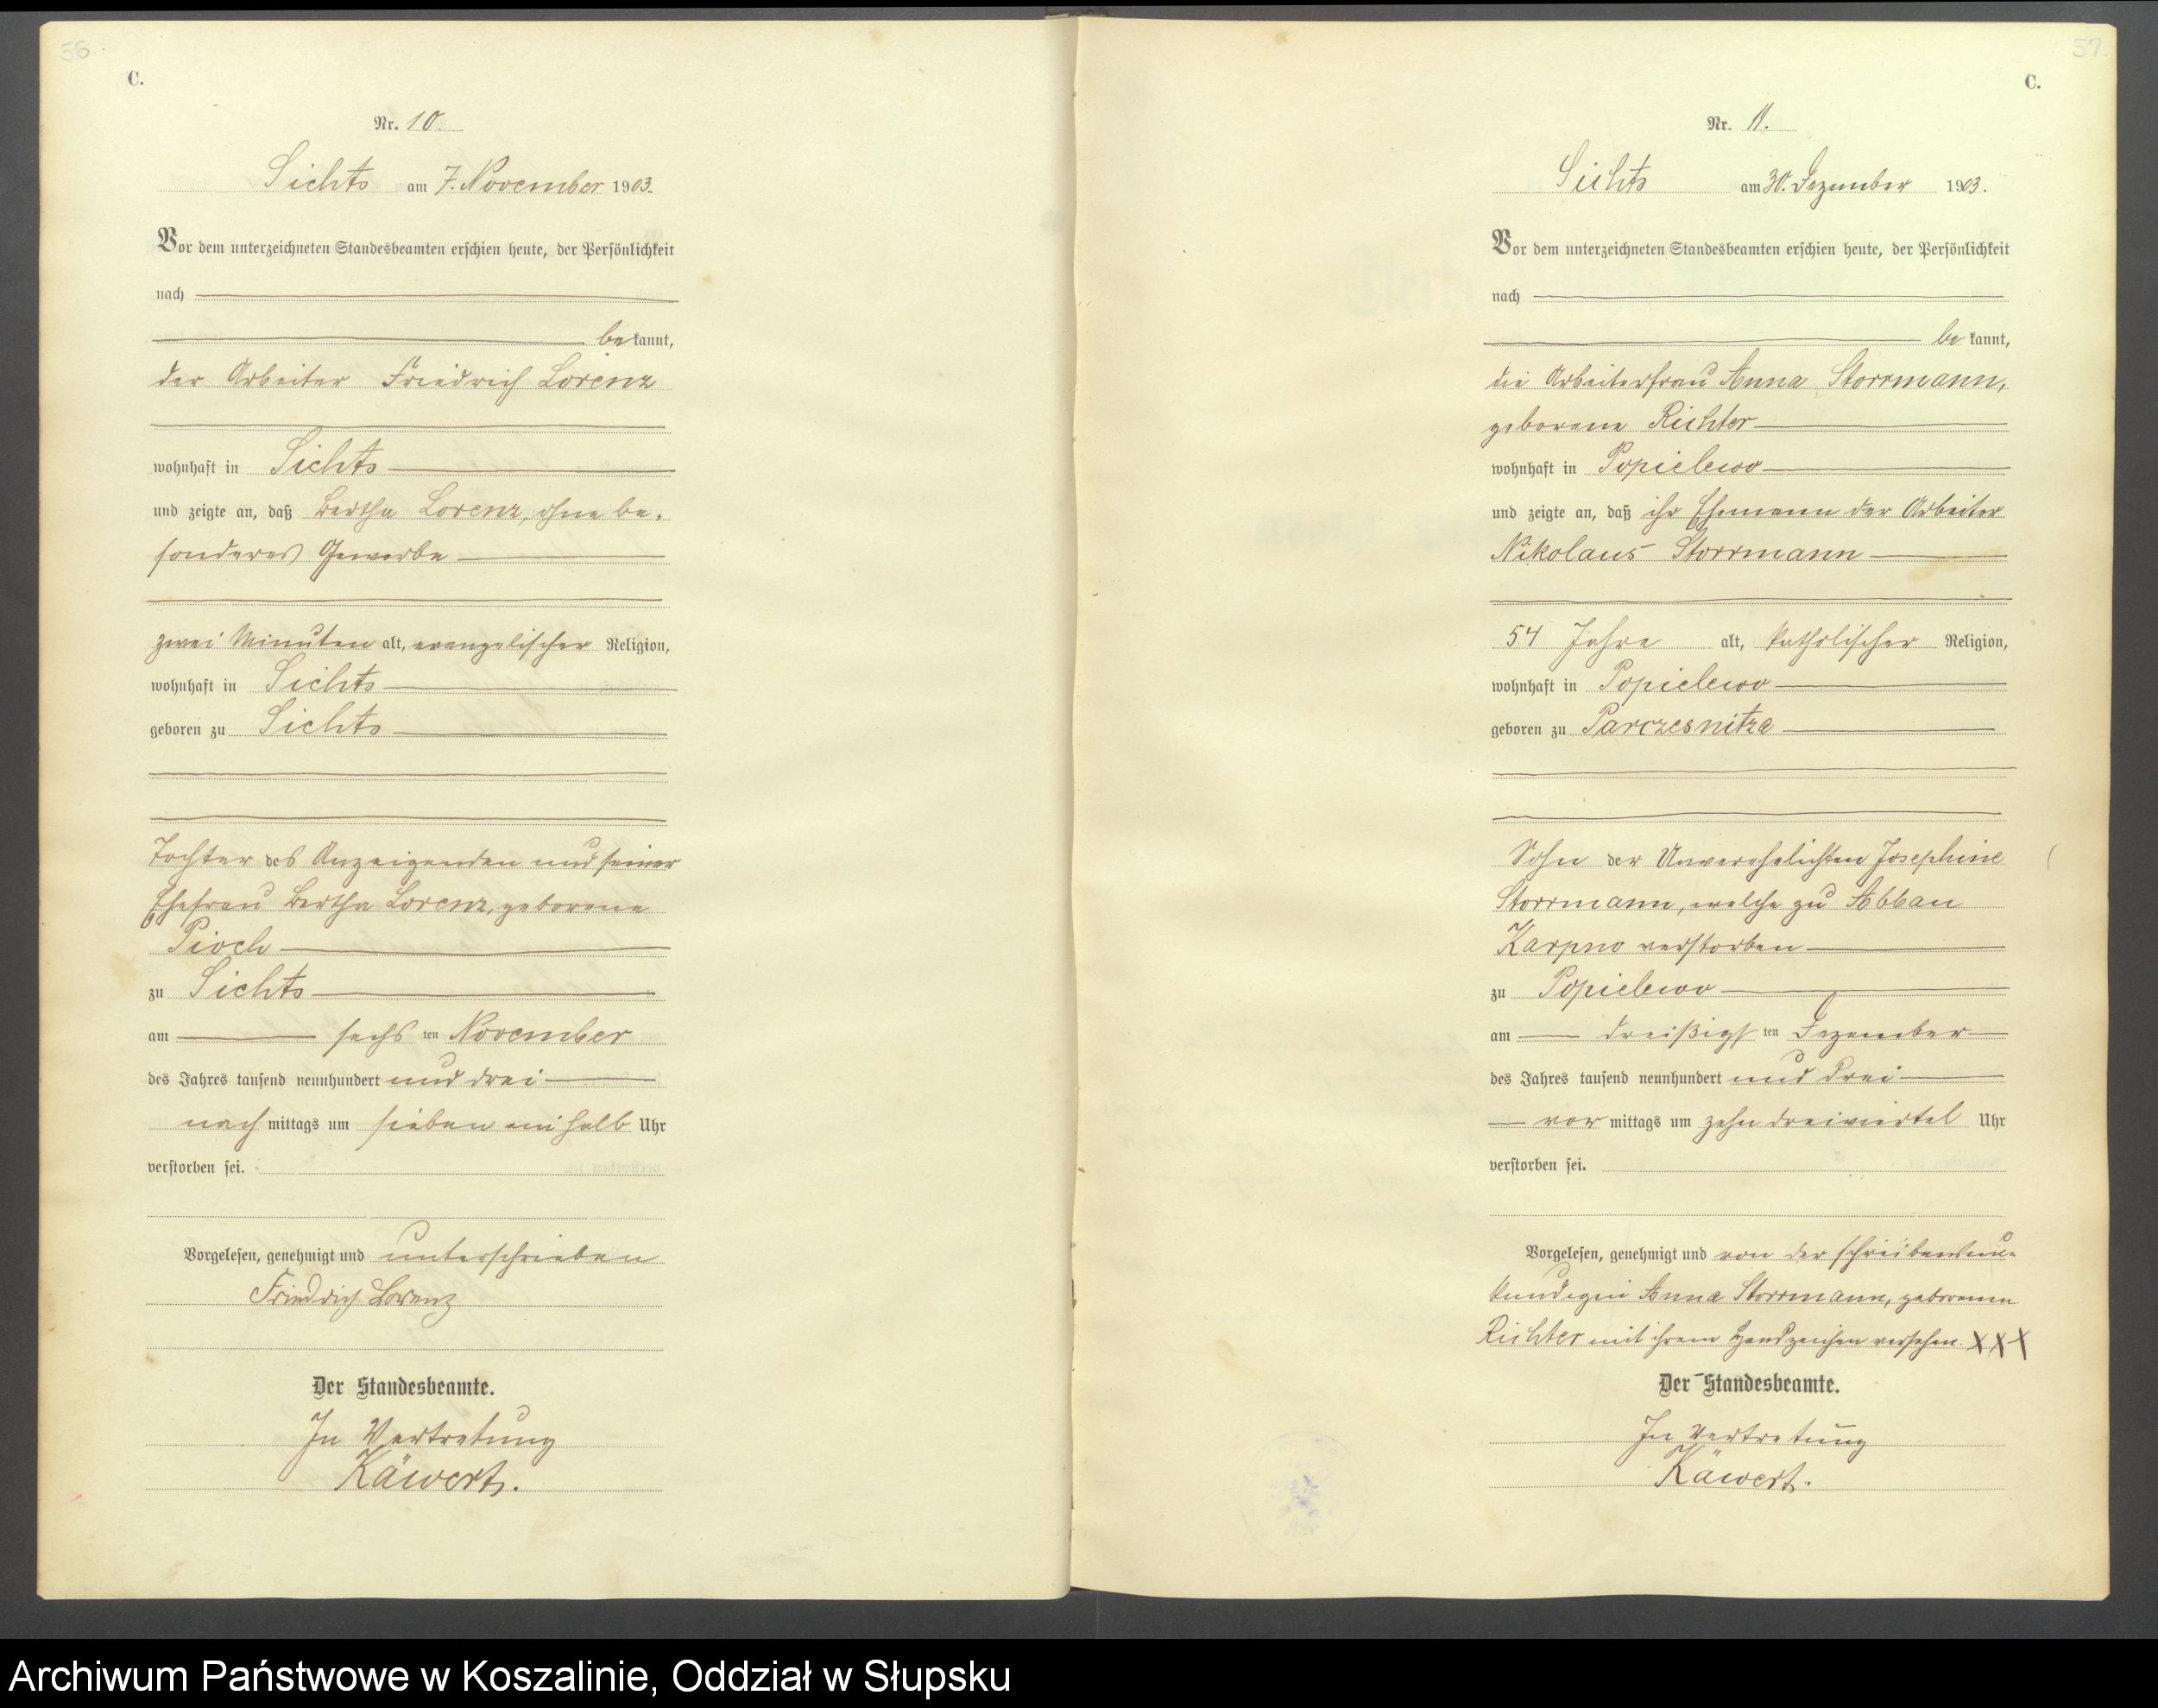 56.
C.
Nr. 10.
Lichts am 7. November 1903.
Vor dem unterzeichneten Standesbeamten erschien heute, der Persönlichkeit
nach
be kannt,
der Arbeiter Friedrich Lorenz
wohnhaft in Lichts
und zeigte an, daß Bertha Lorenz, ohne be-
sonderes Gewerbe
zwei Minuten alt, evangelischer Religion,
wohnhaft in Lichts
geboren zu Lichts
Tochter des Anzeigenden und seiner
Ehefrau Bertha Lorenz, geborene
Pioch
zu Lichts
am sechs ten November
des Jahres tausend neunhundert und drei
nach mittags um sieben ein halb Uhr
verstorben sei.
Vorgelesen, genehmigt und unterschrieben
Friedrich Lorenz
Der Standesbeamte.
In Vertretung
Käwert.
57.
C.
Nr. 11.
Lichts am 30. Dezember 1903.
Vor dem unterzeichneten Standesbeamten erschien heute, der Persönlichkeit
nach
be kannt,
die Arbeiterfrau Anna Storrmann,
geborene Richter
wohnhaft in Popielewo
und zeigte an, daß ihr Ehemann der Arbeiter
Nikolaus Storrmann
54 Jahre alt, katholischer Religion,
wohnhaft in Popielewo
geboren zu Parczesnitza
Sohn der Unverehelichten Josephine
Storrmann, welche zu Abbau
Karpno verstorben
zu Popielewo
am dreißigs ten Dezember
des Jahres tausend neunhundert und drei
vor mittags um zehn dreiviertel Uhr
verstorben sei.
Vorgelesen, genehmigt und von der schreibensun-
kundigen Anna Storrmann, geborenen
Richter mit ihrem Handzeichen versehen. XXX
Der Standesbeamte.
In Vertretung
Käwert.
Archiwum Państwowe w Koszalinie, Oddział w Słupsku